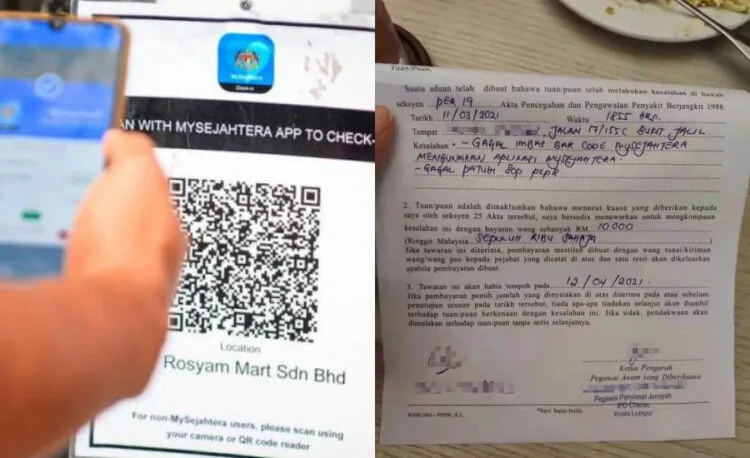 MySejahtera
AN WITH MYSEJAHTERA APP TO CHECK-
Location
Rosyam Mart Sdn Bhd
For non-MySejahtera users, please scan using
your camera or QR code reader
Tuan/Puan,
Suatu aduan telah dibuat bahawa tuan/puan telah melakukan kesalahan di bawah
seksyen PER 19 Akta Pencegahan dan Pengawalan Penyakit Berjangkit 1988.
Tarikh 11/03/2021 Waktu 1855 HRS.
Tempat JALAN 17/155C BUKIT JALIL
Kesalahan *- GAGAL IMBAS BAR CODE MYSEJAHTERA
MENGUNAKAN APLIKASI MYSEJAHTERA.
- GAGAL PATUHI SOP PKPB.
2. Tuan/puan adalah dimaklumkan bahawa menurut kuasa yang diberikan kepada
saya oleh seksyen 25 Akta tersebut, saya bersedia menawarkan untuk mengkompaun
kesalahan ini dengan bayaran wang sebanyak RM 10,000
(Ringgit Malaysia SEPULUH RIBU SAHAJA)
Jika tawaran ini diterima, pembayaran mestilah dibuat dengan wang tunai/kiriman
wang/wang pos kepada pejabat yang dicatat di atas dan satu resit akan dikeluarkan
apabila pembayaran dibuat.
3. Tawaran ini akan habis tempoh pada 12/04/2021.
Jika pembayaran penuh jumlah yang dinyatakan di atas diterima pada atau sebelum
penutupan urusan pada tarikh tersebut, tiada apa-apa tindakan selanjut akan diambil
terhadap tuan/puan berkenaan dengan kesalahan ini. Jika tidak, pendakwaan akan
dimulakan terhadap tuan/puan tanpa notis selanjutnya.
Ketua Pengarah
Pegawai Awam yang Diberikuasa
Pegawai Penyiasat Jenayah
IPD Cheras
Kuala Lumpur
*beri butir-butir.